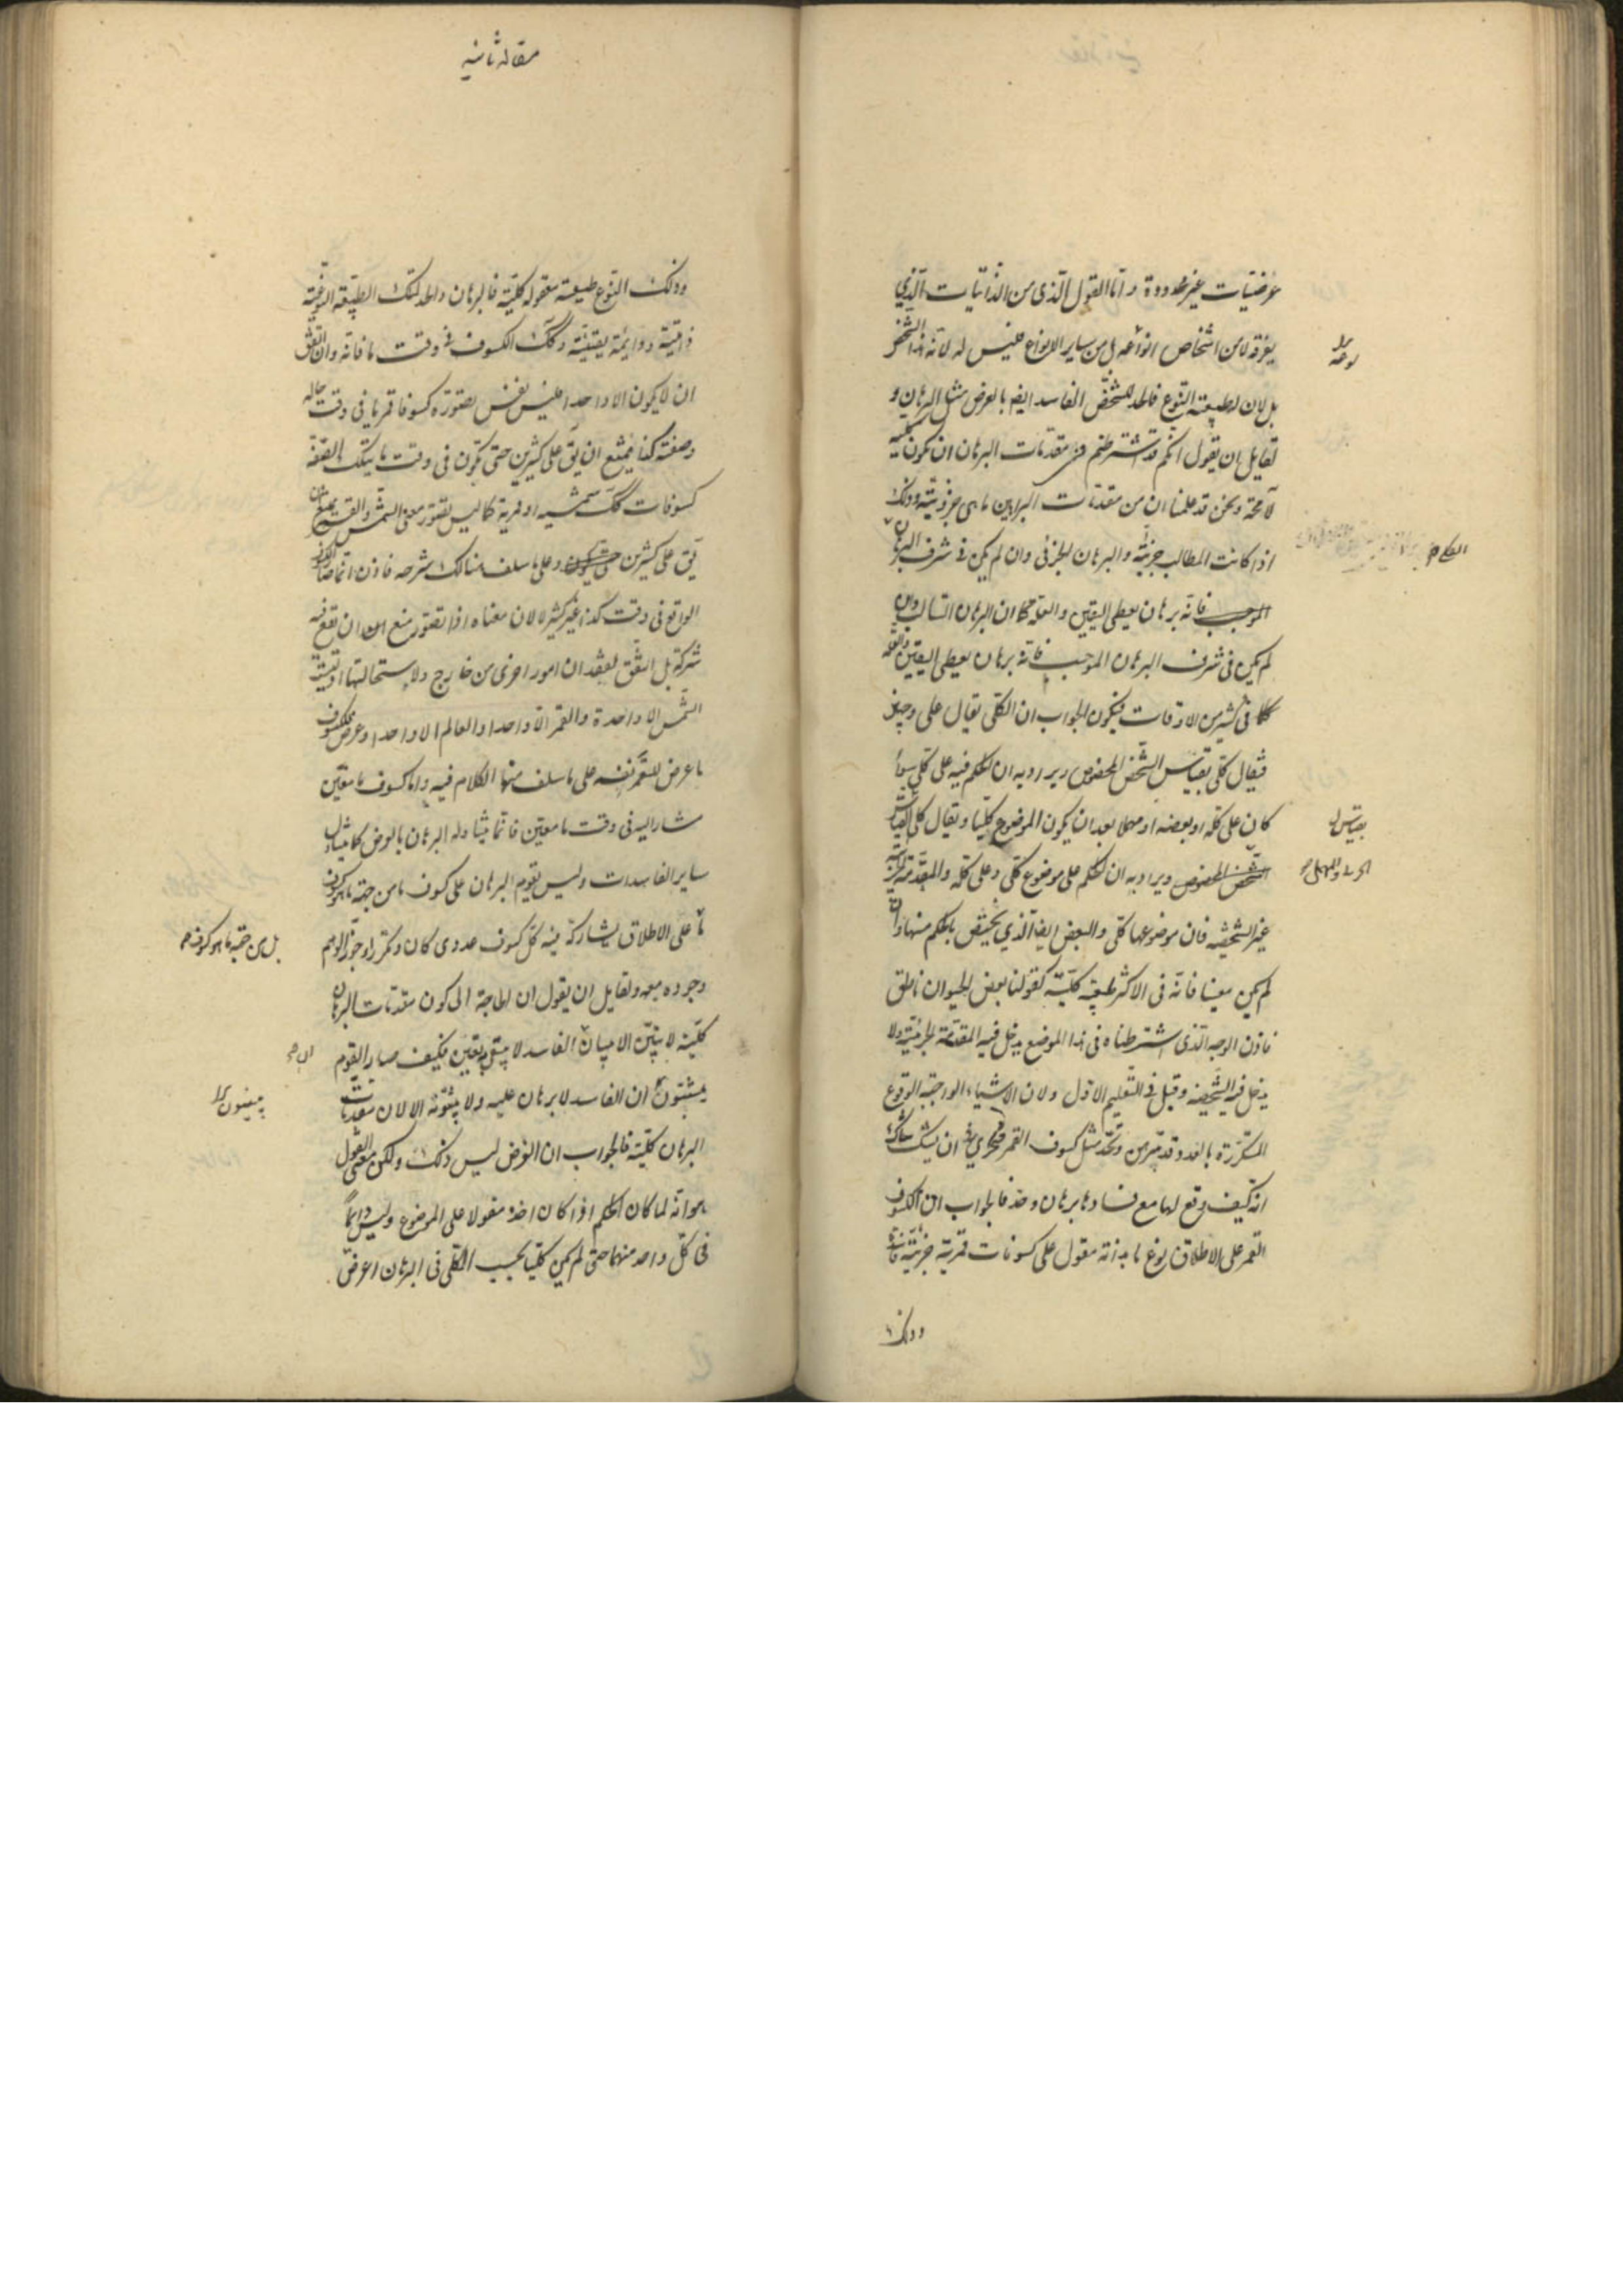 عرضيات غير محدودة واما القول الذى من الذاتيات الذي
يفرقه لا من اشخاص انواعه بل من ساير الانواع فليس له لانه هذا الشخص
بل لان له طبيعة النوع فالحد للشخص الفاسد ايضا بالعرض مثل البرهان و
لقايل ان يقول انكم قد اشترطتم فى مقدمات البرهان ان تكون كلية
لا محة ونحن قد علمنا ان من مقدمات البراهين ما هى جزوية وذلك
اذا كانت المطالب جزئية والبرهان الجزئى وان لم يكن فى شرف البرهان
الموجب فانه برهان يعطى اليقين والعلة كما ان البرهان السالب وان
لم يكن فى شرف البرهان الموجب فانه برهان يعطى اليقين والعلة
كما فى كثير من الاوقات فيكون الجواب ان الكلى يقال على وجهين
فيقال كلى بقياس الشخص المخصوص ويراد به ان الحكم فيه على كلى سواء
كان على كله او بعضه او مهملا بعد ان يكون الموضوع كليا ويقال كلى بقياس
الشخص المخصوص ويراد به ان الحكم على موضوع كلى وعلى كله والمقدمة الجزئية
غير الشخصية فان موضوعها كلى والبعض ايضا الذي يختص بالحكم منها وان
لم يكن معينا فانه فى الاكثر طبيعة كلية كقولنا بعض الحيوان ناطق
فاذن الوجه الذى اشترطناه فى هذا الموضع يدخل فيه المقدمة الجزئية ولا
يدخل فيه الشخصية وقيل فى التعليم الاول ولان الاشياء الواجبة الوقوع
المتكررة بالعدد قد تبرهن وتحد مثل كسوف القمر فحري ان يشك شاك
انه كيف وقع لها مع فسادها برهان وحد فالجواب ان الكسوف
القمر على الاطلاق نوع ما بذاته مقول على كسوفات قمرية جزئية فاسدة
وذلك
بقياس
مقاله ثانيه
وذلك النوع طبيعة معقولة كلية فالبرهان والحد لتلك الطبيعة النوعية
ذاتية ودوايمة يقينية وكك الكسوف فى وقت ما فانه وان اتفق
ان لا يكون الا واحدا فليس نفس تصوره كسوفا قمريا فى وقت حاله
وصفته كذا يمتنع ان يق على كثيرين حتى تكون فى وقت ما بتلك الصفة
كسوفات كك شمسيه او قمرية كما ليس تصور معنى الشمس والقمر يمنع ان
يق على كثيرين وعلى ما سلف هنالك شرحه فاذن انما صار الكسوف
الواقع فى وقت كذا غير كثير لا لان معناه اذا تصور منع عن ان تقع فيه
شركة بل اتفق لفقدان امور اخرى من خارج ولاستحالتها اذ ليست
الشمس الا واحدة والقمر الا واحدا والعالم الا واحدا وعرض للكسوف
ما عرض للقمر نفسه على ما سلف منا الكلام فيه واما كسوف ما معين
مشار اليه فى وقت ما معين فانما يتناوله البرهان بالعرض كما يتناول
ساير الفاسدات وليس يقوم البرهان على كسوف ما من جهة ما هو كسوف
ما على الاطلاق يشاركه فيه كل كسوف عددى كان وتكرر او جوز الوهم
بل من جهة ما هو كسوف
وجوده معه ولقايل ان يقول ان الحاجة الى كون مقدمات البرهان
كلية لا يبين الا ببيان الفاسد لا يبقى به يقين فكيف صار القوم
يثبتون ان الفاسد لا برهان عليه ولا يثبتونه الا لان مقدمات
البرهان كلية فالجواب ان الغرض ليس ذلك ولكن معنى القول
هو انه لما كان الحكم اذا كان اخذه مقولا على الموضوع وليس دائما
فى كل واحد منهما حتى لم يكن كليا بحسب الكلى فى البرهان اعرض